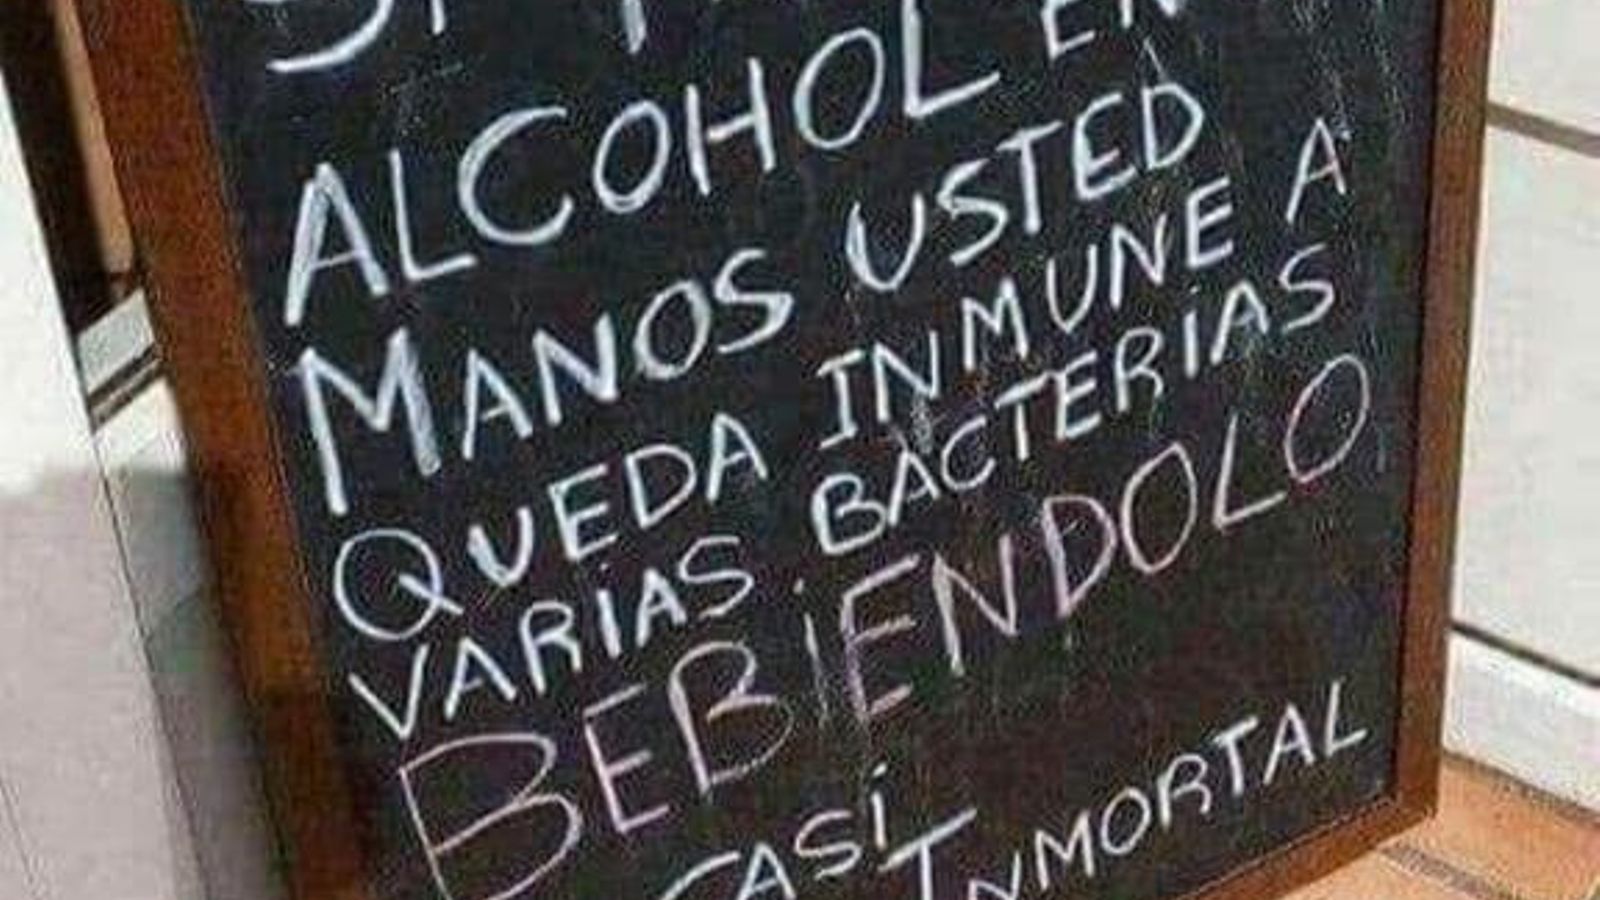 ALCOHOL EN
MANOS USTED
QUEDA INMUNE A
VARIAS BACTERIAS
BEBIENDOLO
CASI INMORTAL